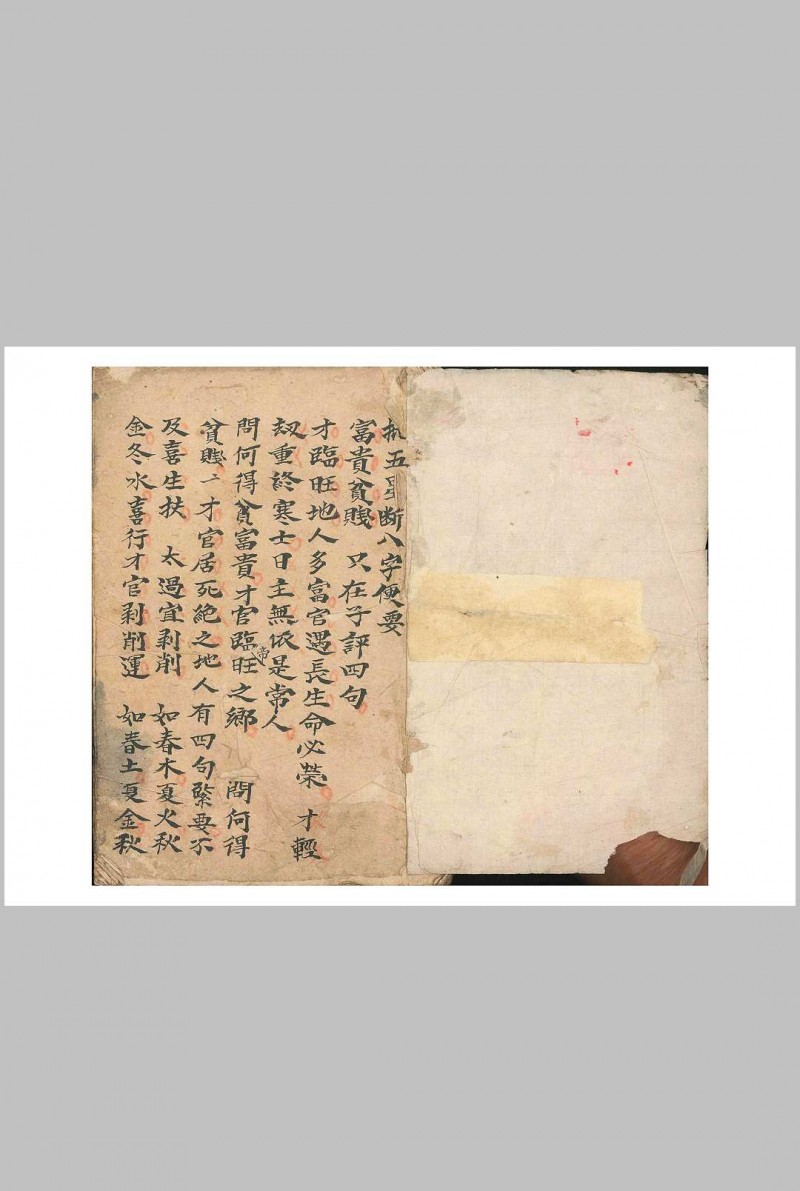 批五星断八字便要
富貴貧賤 只在子評四句
才臨旺地人多富官遇長生命必榮 才輕
刼重終寒士日主無依是常人
問何得富貴才官臨帝旺之鄉 問何得
貧賤二才官居死絶之地人有四句緊要不
及喜生扶 太過宜剥削 如春木夏火秋
金冬水喜行才官剥削運 如春土夏金秋